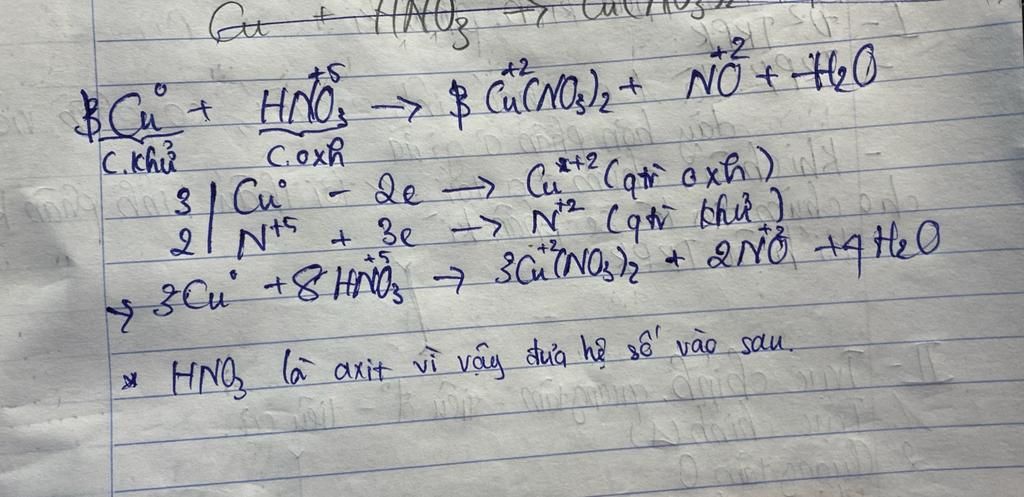 Cu + HNO3 → Cu(NO3)2
Cu⁰ + HN⁺⁵O3 → Cu⁺²(NO3)2 + N⁺²O + H2O
C.khử C.oxh
3 | Cu⁰ - 2e → Cu⁺² (qtr oxh)
2 | N⁺⁵ + 3e → N⁺² (qtr khử)
→ 3Cu⁰ + 8HN⁺⁵O3 → 3Cu⁺²(NO3)2 + 2N⁺²O + 4H2O
* HNO3 là axit vì vậy đưa hệ số vào sau.